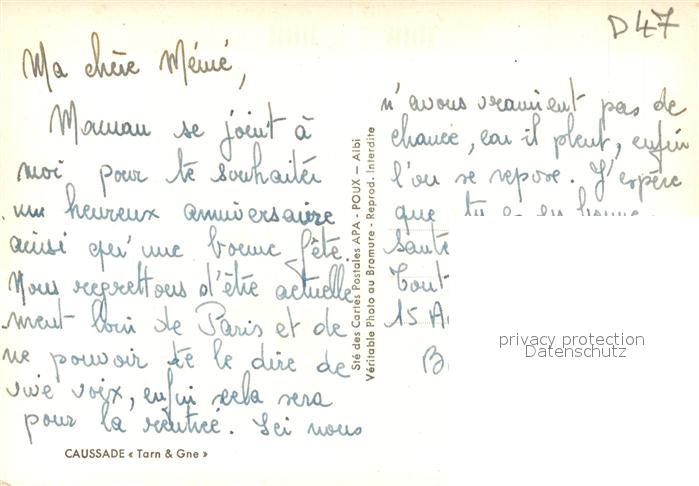 D47
Ma chère Mémé,
Maman se joint à
moi pour te souhaiter
un heureux anniversaire
ainsi qu'une bonne fête.
Nous regrettons d'être actuelle
ment loin de Paris et de
ne pouvoir te le dire de
vive voix, enfin cela sera
pour la rentrée. Ici nous
n'avons vraiment pas de
chance, car il pleut, enfin
l'on se repose. J'espère
que tu es en bonne
santé
Tout
15 A
B
CAUSSADE « Tarn & Gne »
Sté des Cartes Postales APA - POUX — Albi
Véritable Photo au Bromure - Reprod. Interdite
privacy protection
Datenschutz